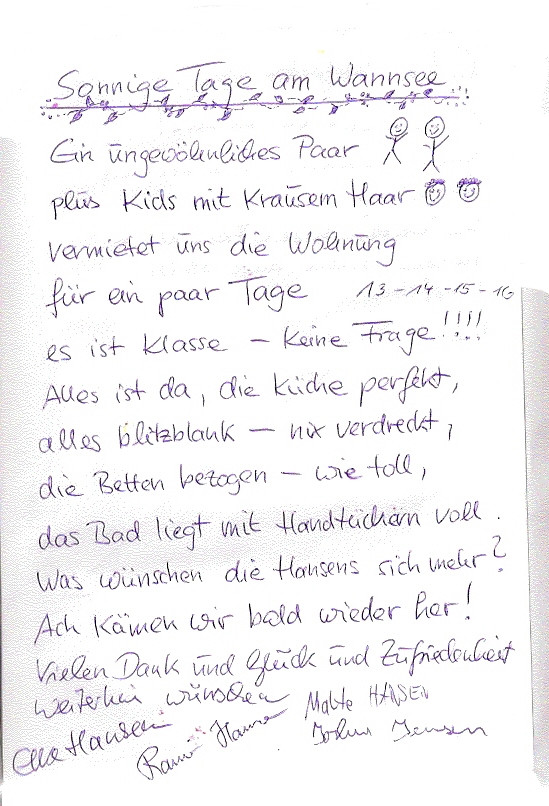 Sonnige Tage am Wannsee
Ein ungewöhnliches Paar
plus Kids mit Krausem Haar
vermietet uns die Wohnung
für ein paar Tage 13-14-15-16
es ist Klasse – Keine Frage!!!!
Alles ist da, die Küche perfekt,
alles blitzblank – nix verdreckt,
die Betten bezogen – wie toll,
das Bad liegt mit Handtüchern voll.
Was wünschen die Hansens sich mehr?
Ach Kämen wir bald wieder her!
Vielen Dank und Glück und Zufriedenheit
weiterhin wünschen
Malte HANSEN
Hansen